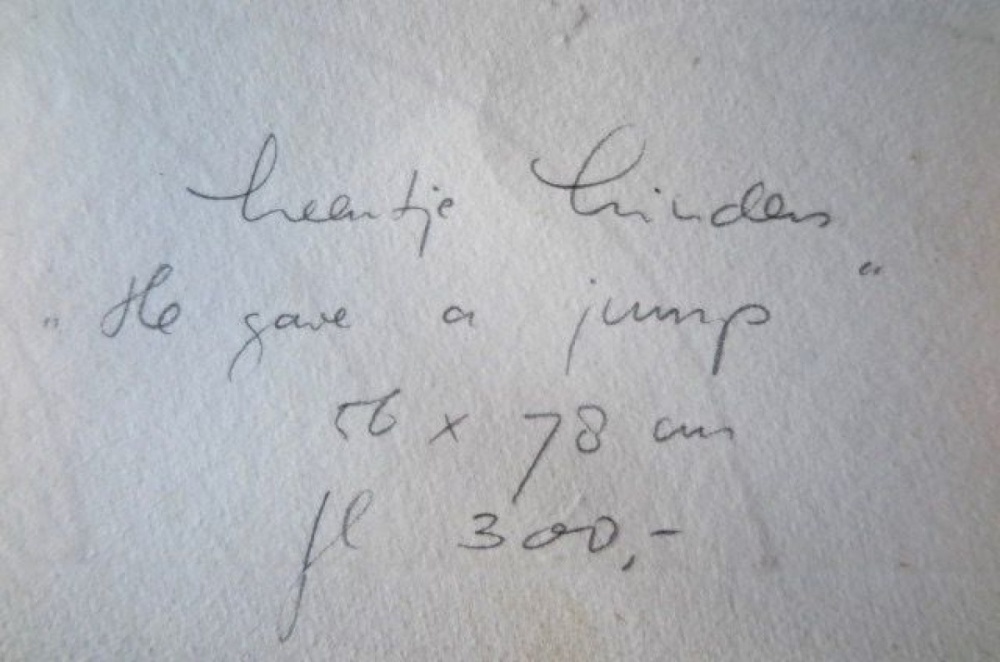 Leentje Linders
„He gave a jump“
56 x 78 cm
fl 300,-